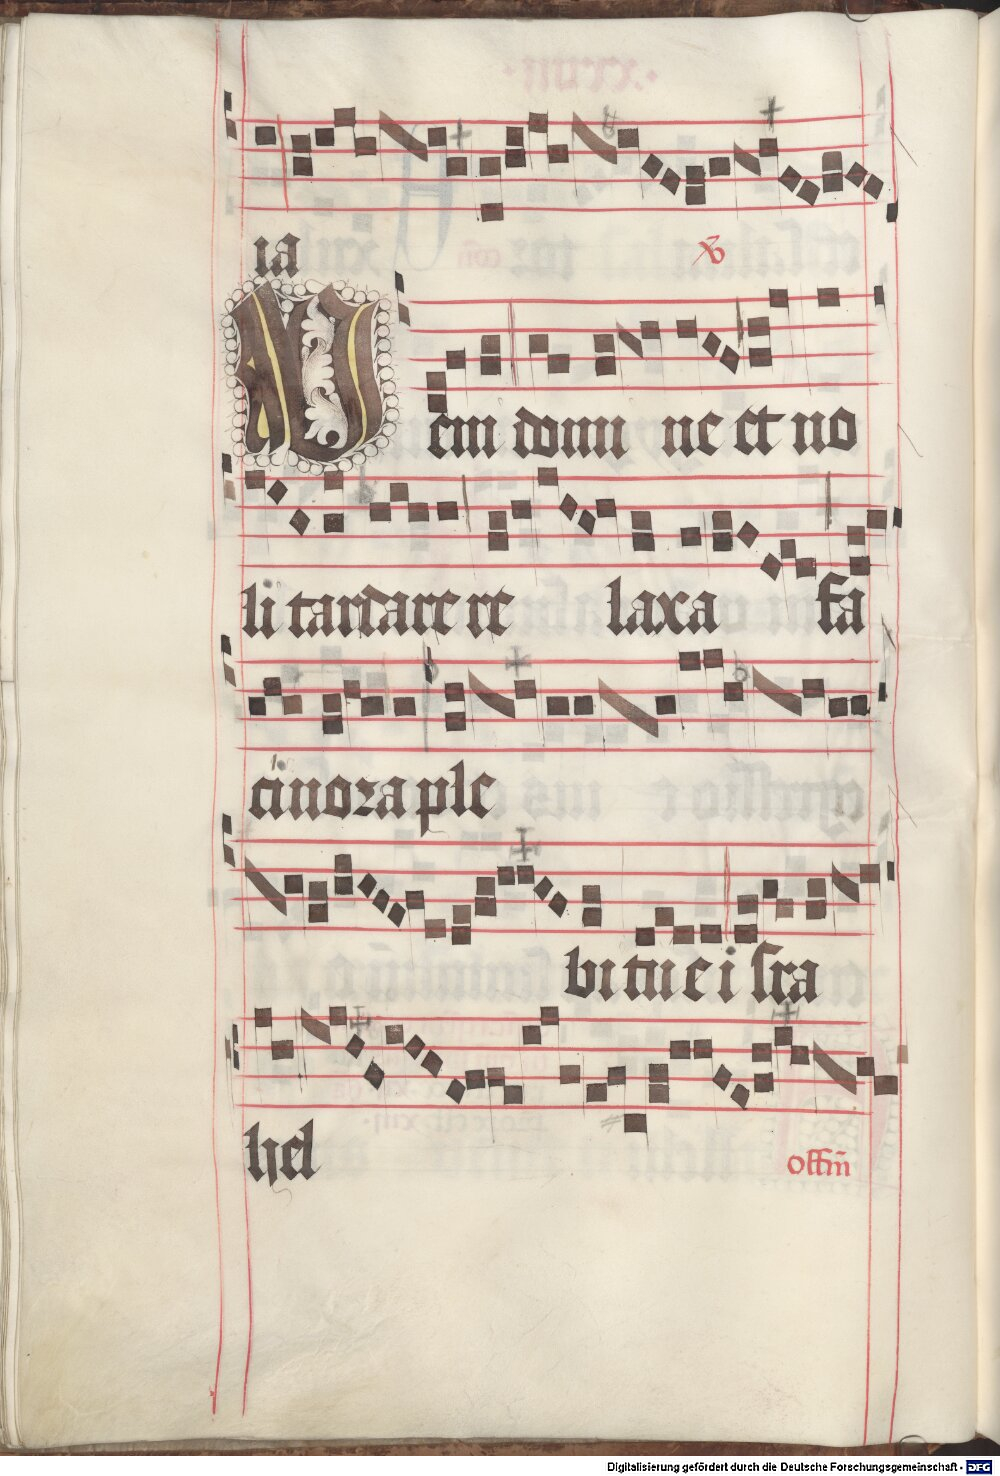 ia
℣
Veni domi ne et no
li tardare re laxa fa
cinora ple
bi tue i sra
hel
offm̄
Digitalisierung gefördert durch die Deutsche Forschungsgemeinschaft - DFG